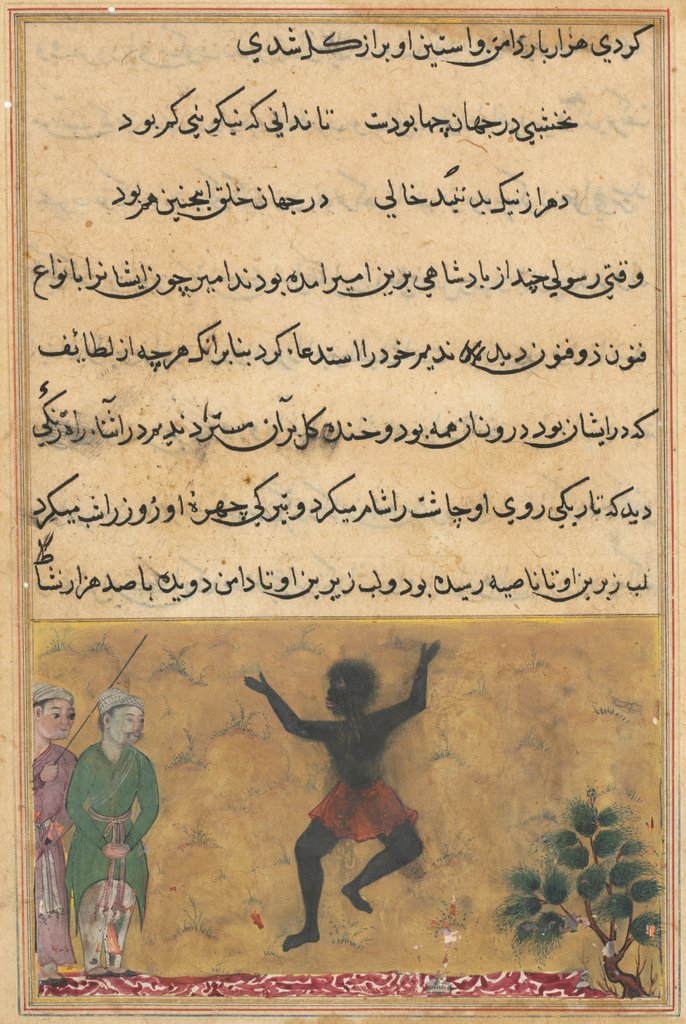 کردي هزار بار دامن و استین او پر از کل شدي
نخشبي در جهان چها بودست تا نداني که نیکوئي کم بود
دهر از نیک بد نشد خالي در جهان خلق اینچنین هم بود
وقتي رسولي چند از بادشاهي برین امیر امده بودند امیر چون ایشانرا با نواع
فنون ذو فنون دید ندیم خود را استدعاء کرد بنابرانکه هرچه از لطائف
که در ایشان بود درو نان همه بود و خنده کل بر آن مستزاد ندیم در اثناء راه زنکي
دید که تاریکي روي او چاشت را شام میکرد و تیرکي چهرهٔ او روز را شب میکرد
لب زبرین او تا ناصیه رسیده بود و لب زیرین او تا دامن دویده با صد هزار نشاط